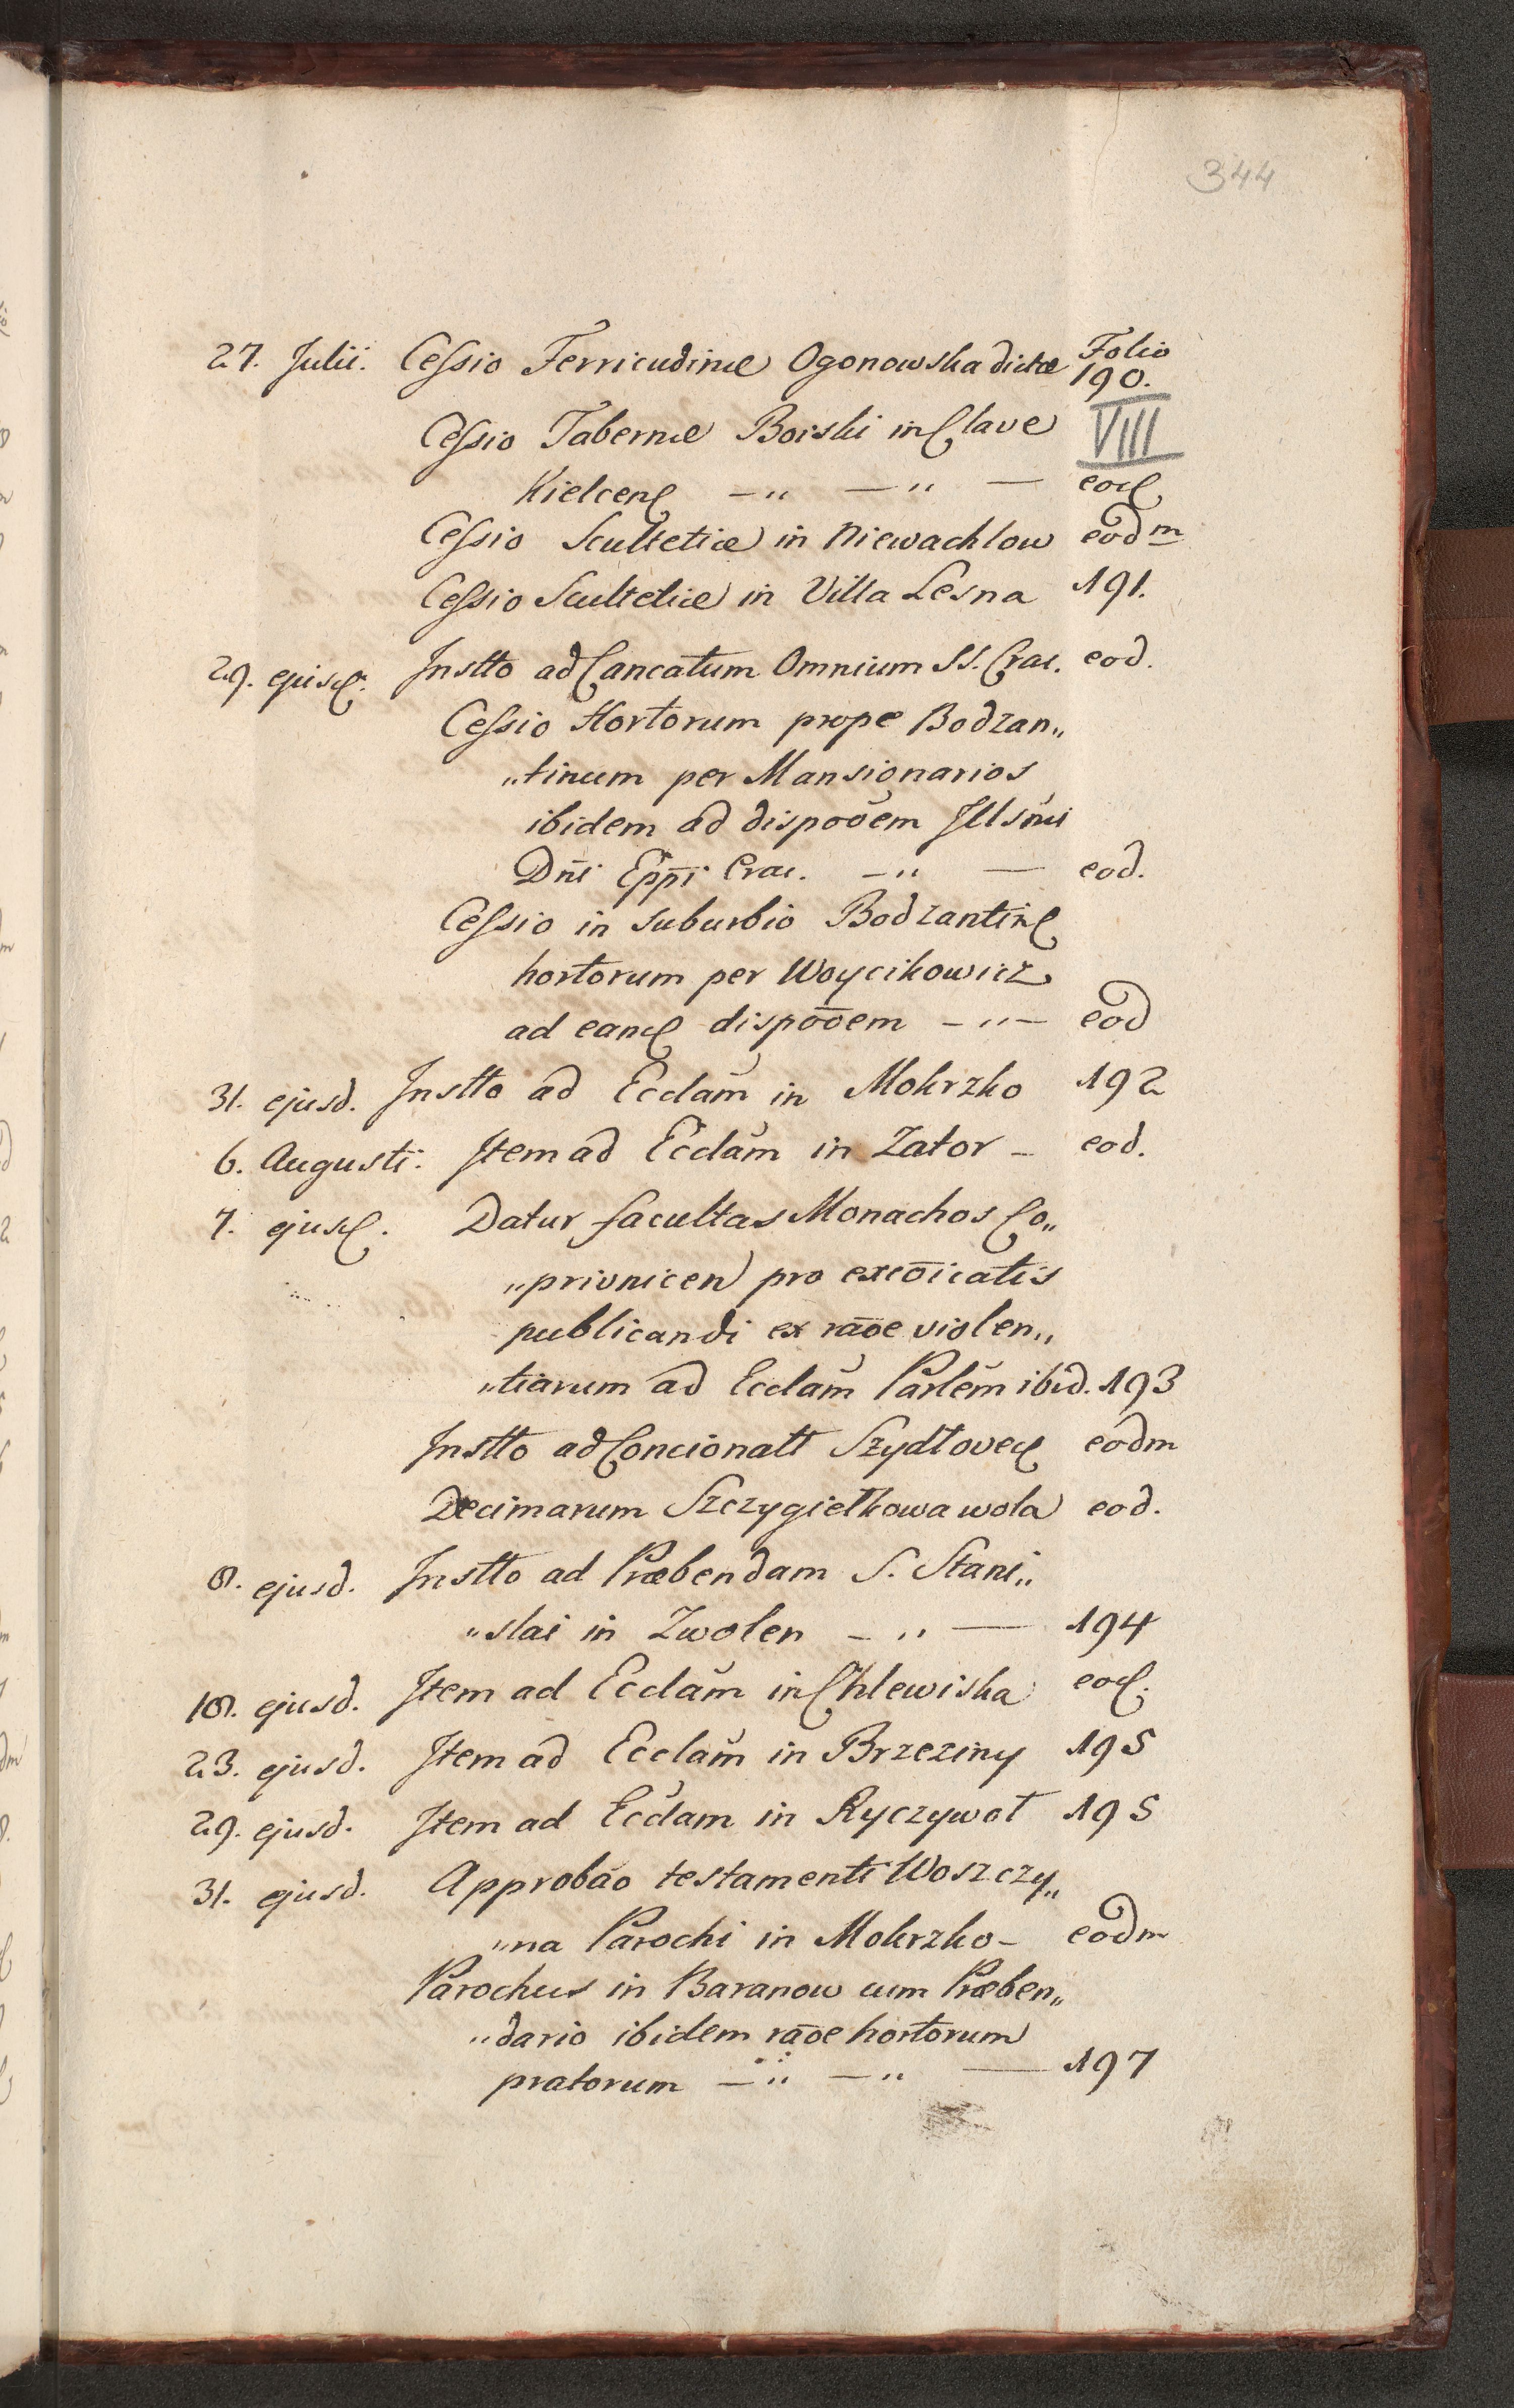 344
Folio
27. Julii. Cessio Ferricudinæ Ogonowska dictæ 190.
VIII
Cessio Tabernæ Borski in Clave
Kielcen –„ –„ – eod
Cessio Scultetiæ in Niewachlow eodm
Cessio Scultetiæ in Villa Lesna 191.
29. ejusd. Instto ad Cancatum Omnium SS. Crac. eod.
Cessio Hortorum prope Bodzan„
„tinum per Mansionarios
ibidem ad dispoõem Illsm̃i
Dñi Epp̃i Crac. –„ – eod.
Cessio in suburbio Bodzantin
hortorum per Woycikowicz
ad eand dispoõem –„– eod
31. ejusd. Instto ad Ecclãm in Mokrzko 192
6. Augusti. Item ad Ecclãm in Zator – eod.
7. ejusd. Datur facultas Monachos Co„
„privnicen pro excõicatis
publicandi ex rãoe violen„
„tiarum ad Ecclãm Parlẽm ibid. 193
Instto ad Concionatt Szydłovec eodm
Decimarum Szczygiełkowa wola eod.
8. ejusd. Instto ad Præbendam S. Stani„
„slai in Zwolen –„ – 194
18. ejusd. Item ad Ecclãm in Chlewiska eod.
23. ejusd. Item ad Ecclãm in Brzeziny 195
29. ejusd. Item ad Ecclam in Ryczywoł 195
31. ejusd. Approbão testamenti Woszczy„
„na Parochi in Mokrzko – eodm
Parochus in Baranow cum Præben„
„dario ibidem rãoe hortorum
pratorum –„ –„ – 197